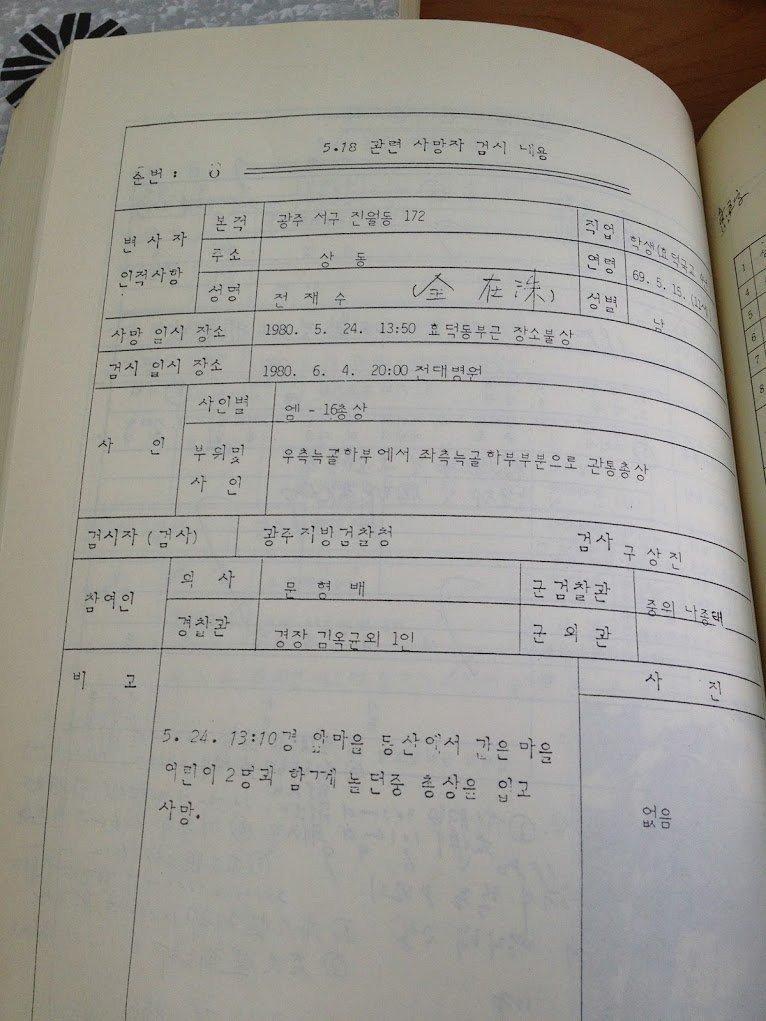 5.18 관련 사망자 검시 내용
순번 :
변사자 인적사항
본적 광주 서구 진월동 172 직업 학생(효덕국교
주소 상 동 연령 69. 5. 15.
성명 전 재 수 ( 在洙) 성별 남
사망 일시 장소 1980. 5. 24. 13:50 효덕동부근 장소불상
검시 일시 장소 1980. 6. 4. 20:00 전대병원
사 인
사인별 엠 - 16총상
부위및 사 인 우측늑골하부에서 좌측늑골하부부분으로 관통총상
검시자 (검사) 광주지방검찰청 검사 구상진
참여인
의 사 문 형 배 군검찰관 중위 나종태
경찰관 경장 김옥균외 1인 군 의 관
비 고 사 진
5. 24. 13:10경 앞마을 동산에서 같은 마을
어린이 2명과 함께 놀던중 총상을 입고
사망.
없음